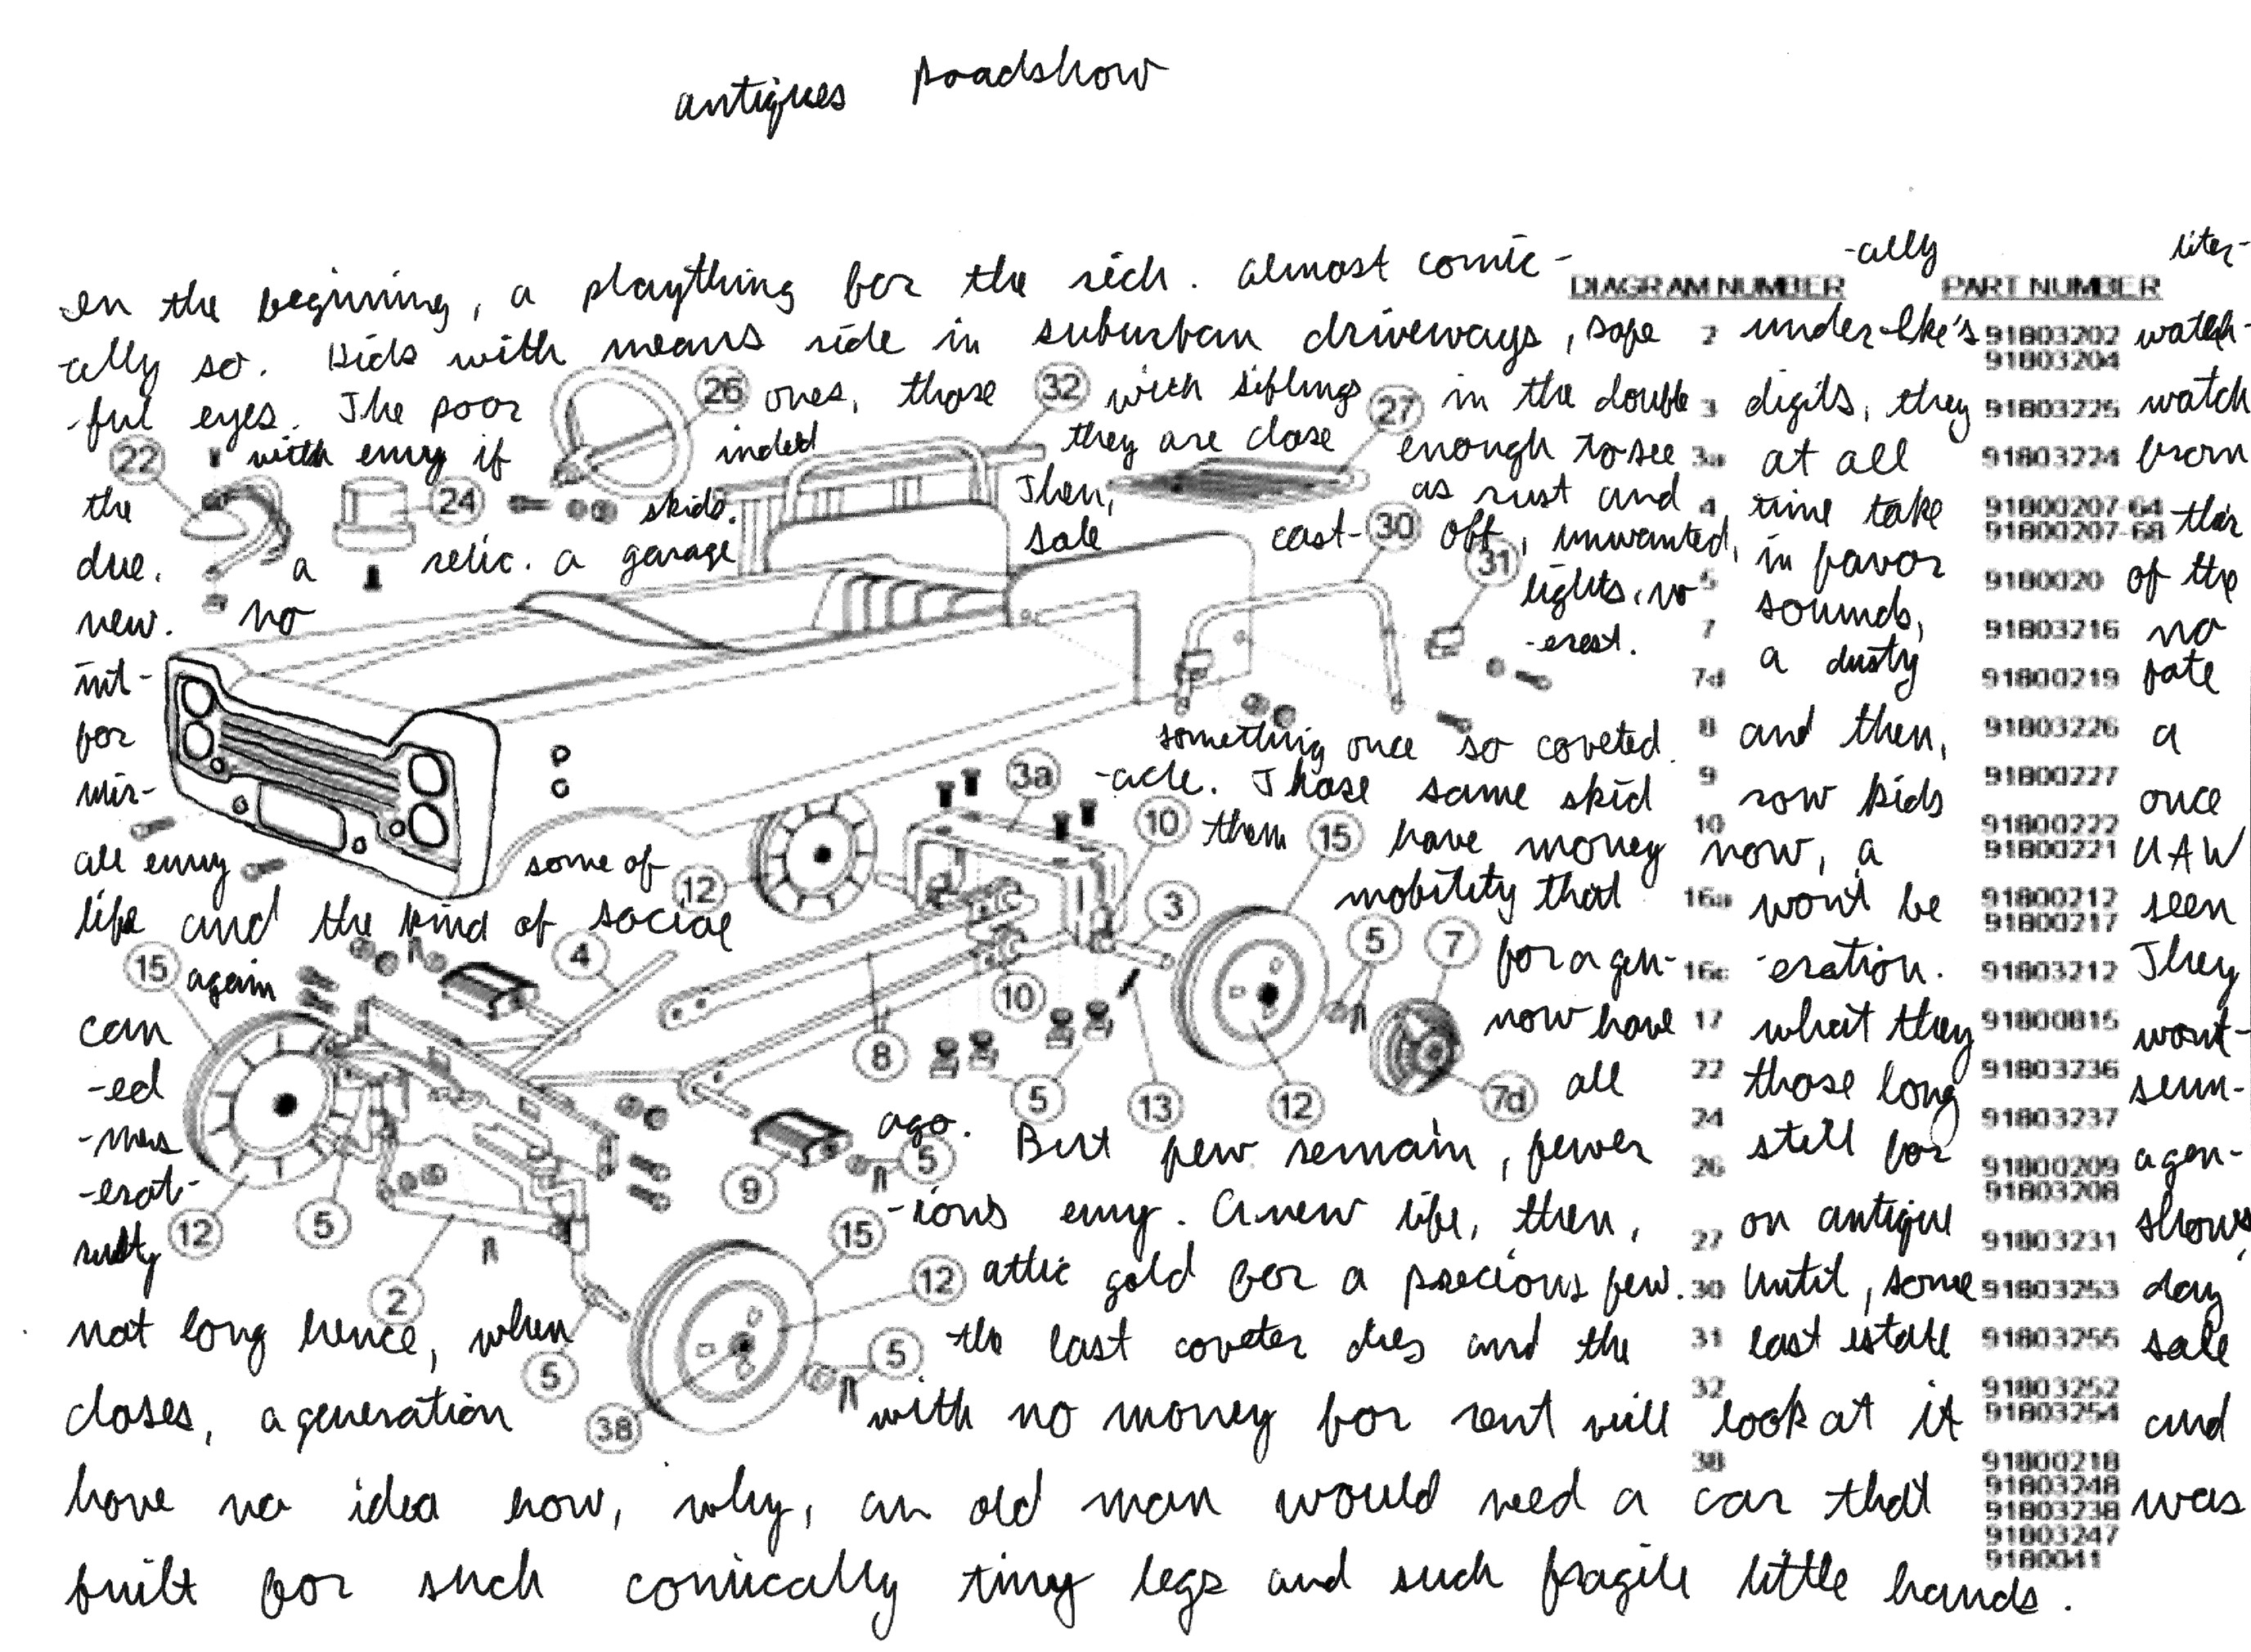 antiques roadshow
-ally liter-
In the beginning, a plaything for the rich. Almost comic- DIAGRAM NUMBER PART NUMBER
-ally so. Kids with means ride in suburban driveways, safe 2 under Ike's 91803202 watch-
91803204
-ful eyes. The poor 26 ones, those 32 with siblings 27 in the double 3 digits, they 91803225 watch
22 with envy if indeed they are close enough to see 3a at all 91803224 from
the 24 skids. Then, as rust and 4 time take 91800207-64 their
91800207-68
due. a relic. a garage sale cast- 30 off, unwanted, in favor of the
new. no 31 lights, no 5 sounds, 9180020 no
7 91803216
int- -erest. a dusty 7d 91800219 fate
for something once so coveted. 8 and then, 91803226 a
mir- 3a -acle. Those same skid 9 row kids 91800227 once
all envy some of 12 10 them 15 have money 10 now, a 91800222 UAW
91800221
life and the kind of social 3 mobility that 16a won't be 91800212 seen
91800217
15 again 4 5 7 for a gen- 16c -eration. 91803212 They
can 8 10 now have 17 what they 91800815 want-
-ed 5 13 12 7d all 22 those long 91803236 sum-
-mers ago. But few remain, fewer 24 still for 91803237 a gen-
9 5 26 91800209
91803208
-erat- 12 5 15 -ions envy. A new life, then, 27 on antique 91803231 shows,
rusty 2 12 attic gold for a precious few. 30 Until, some 91803253 day
not long hence, when 5 5 the last coveter dies and the 31 last estate 91803255 sale
closes, a generation 38 with no money for rent will 32 look at it 91803252 and
91803254
38 91800218
have no idea how, why, an old man would need a car that 91803248 was
91803238
91803247
9180041
built for such comically tiny legs and such fragile little hands.